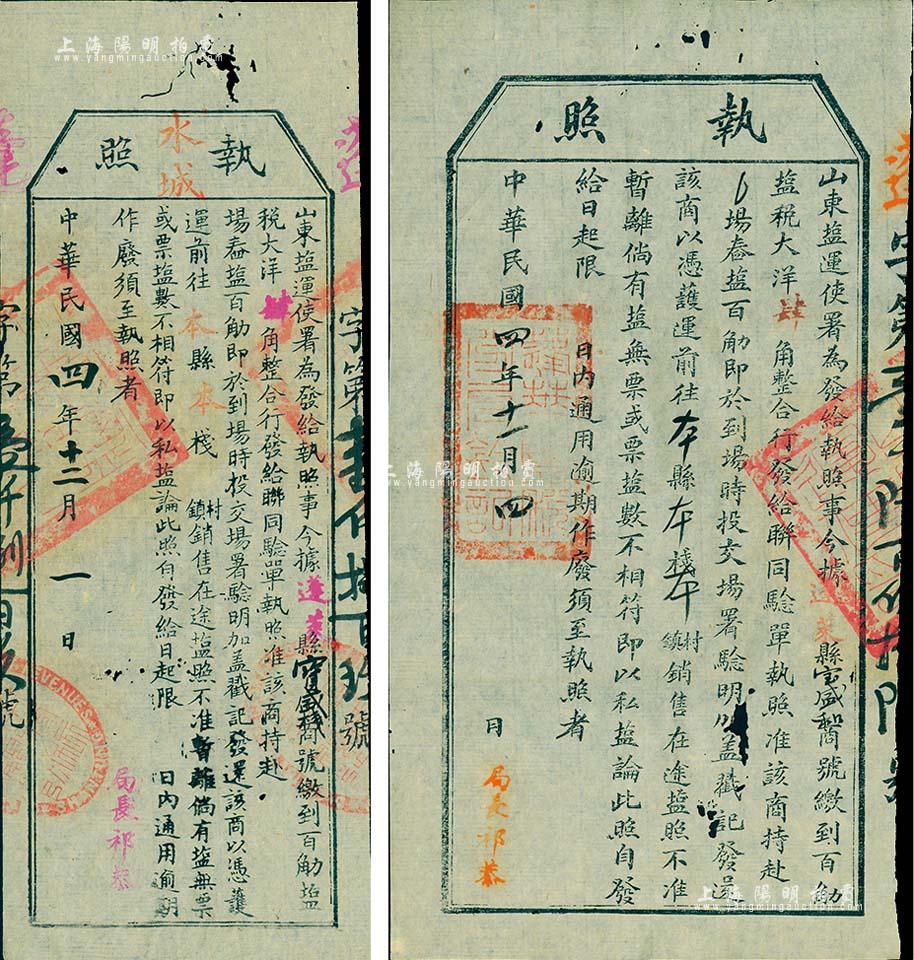 上海陽明拍賣
www.yangmingauction.com
執照
水城
山東塩運使署為發給執照事今據蓬萊縣寶盛和商號繳到百觔塩
稅大洋肆角整合行發給聯同驗單執照准該商持赴
場舂塩百觔即於到場時投交場署驗明加盖戳記發還該商以憑護
運前往本縣本棧村鎮銷售在途塩照不准暫離倘有塩無票
或票塩數不相符即以私塩論此照自發給日起限 日內通用逾期
作廢須至執照者
中華民國四年十二月一日
局長祁恭
字第
號
字第
號
執照
山東塩運使署為發給執照事今據蓬萊縣寶盛和商號繳到百觔
塩稅大洋肆角整合行發給聯同驗單執照准該商持赴
場舂塩百觔即於到場時投交場署驗明加盖戳記發還
該商以憑護運前往本縣本棧本村鎮銷售在途塩照不准
暫離倘有塩無票或票塩數不相符即以私塩論此照自發
給日起限 日內通用逾期作廢須至執照者
中華民國四年十一月四 月
局長祁恭
字第
上海陽明拍賣
www.yangmingauction.com
上海陽明拍賣
www.yangmingauction.com